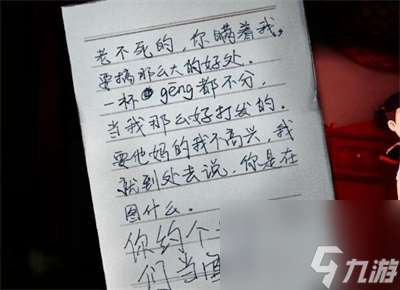 老不死的，你瞒着我，
要搞那么大的好处．
一杯gēng都不分．
当我那么好打发的．
要他妈的我不高兴，我
就到处去说，你是在
图什么．
你约个
们当
九游